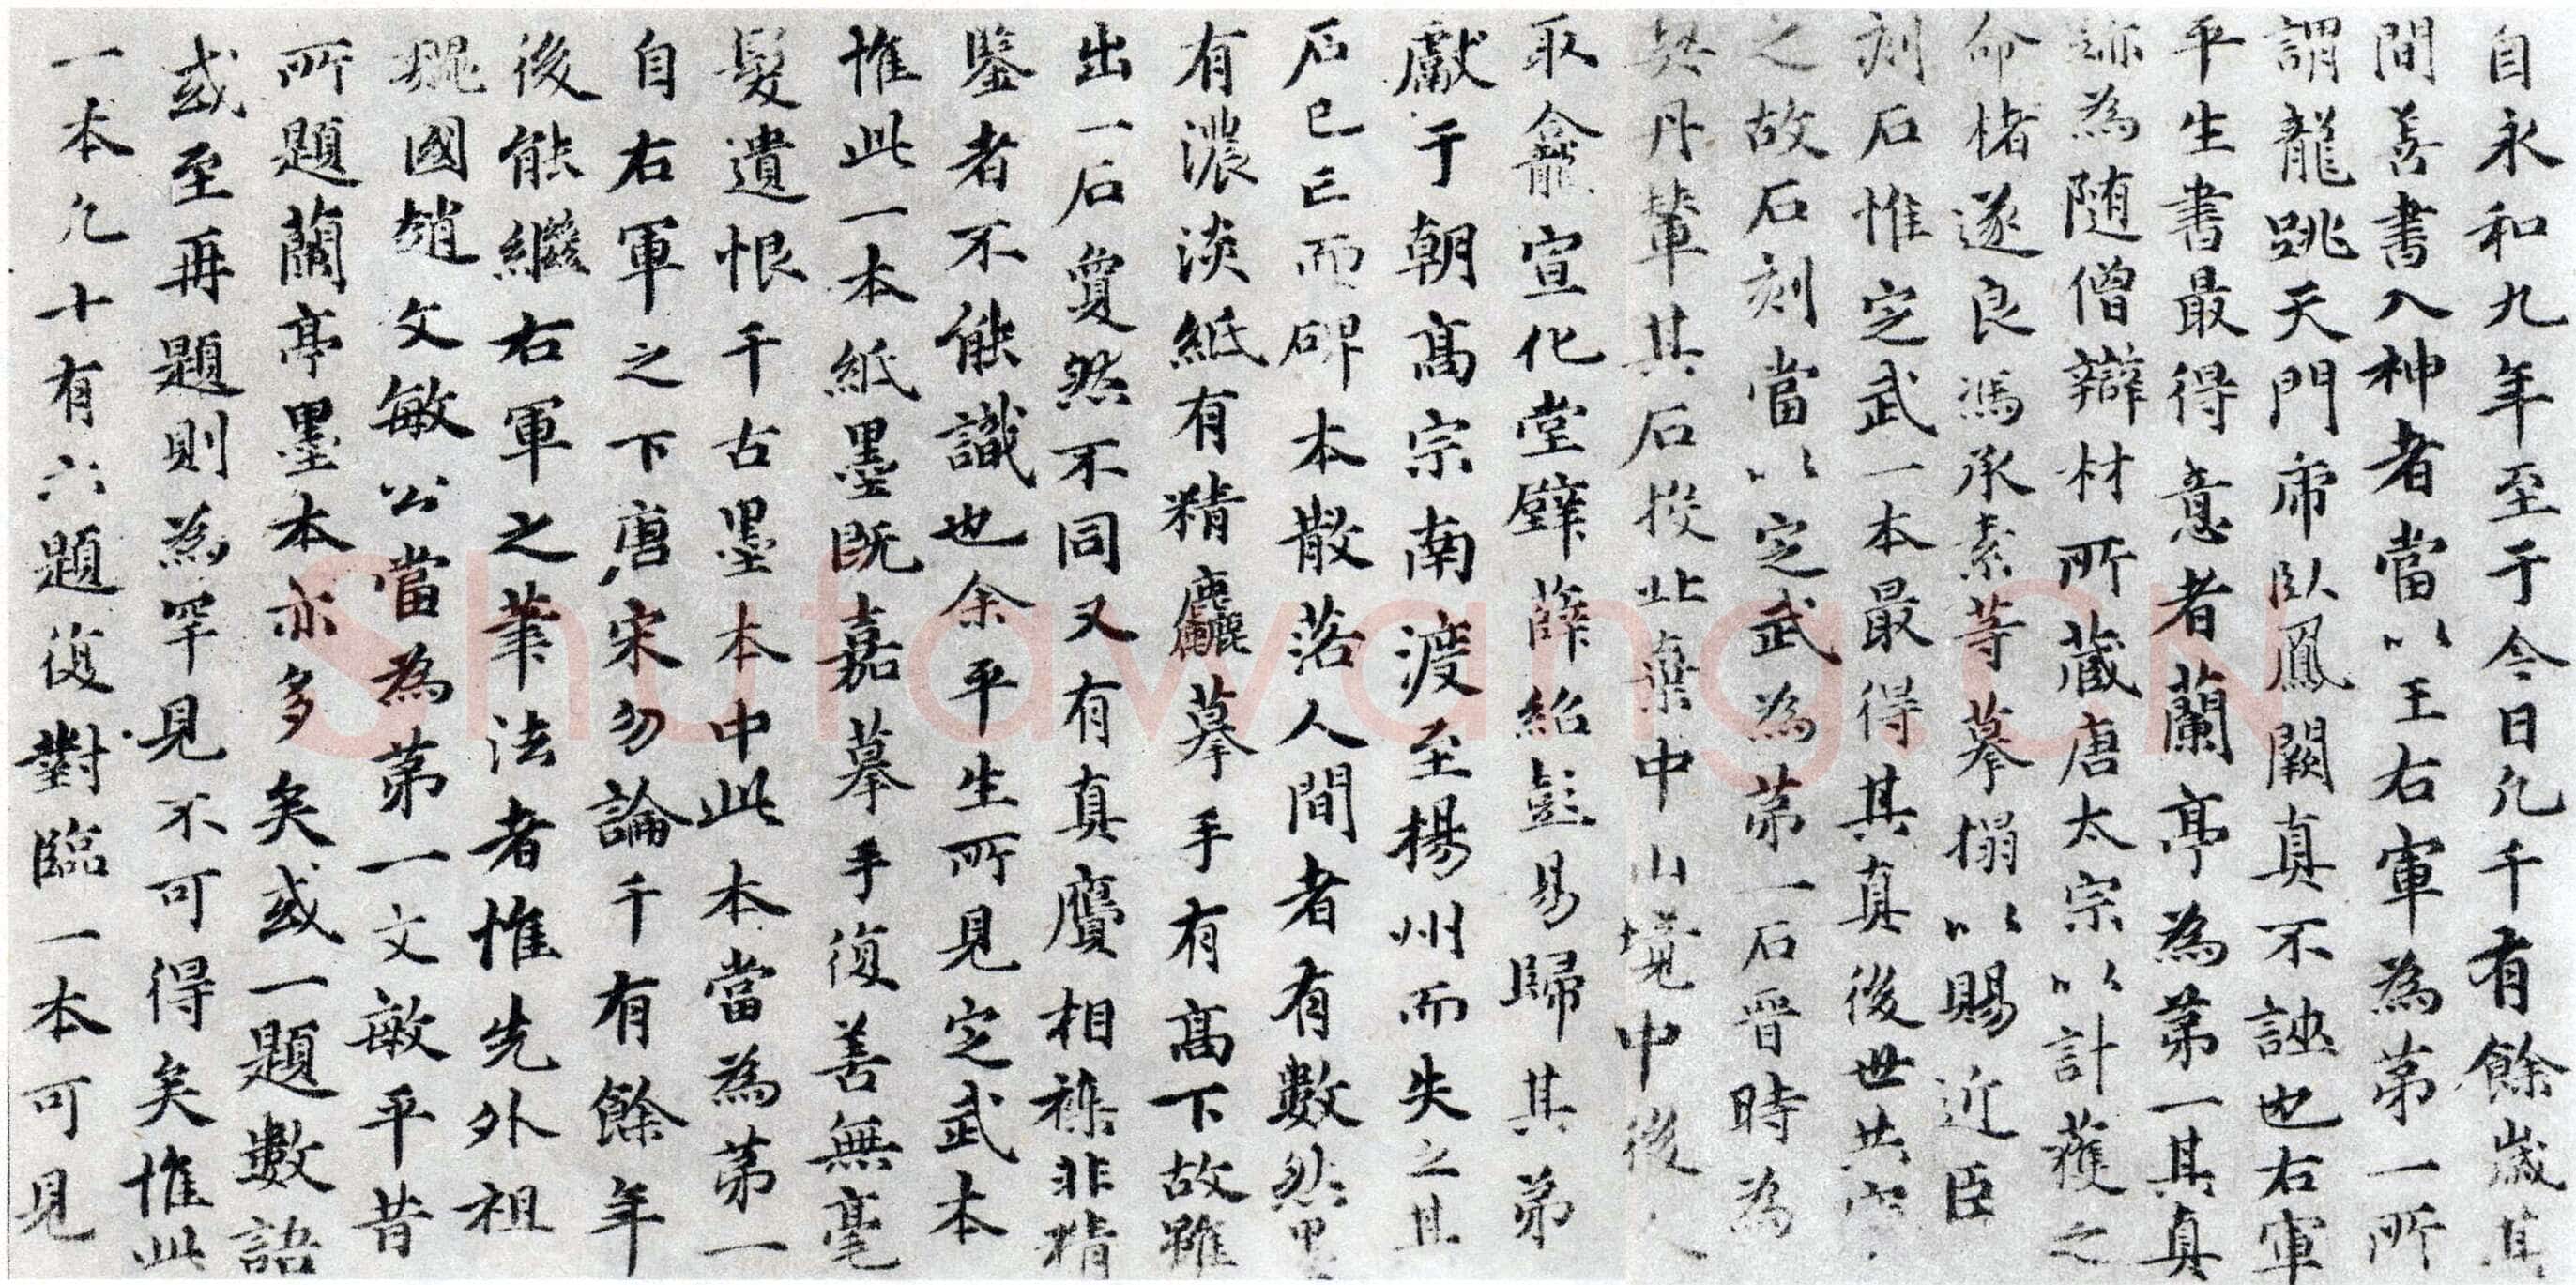 自永和九年至于今日凡千有餘歲其
間善書入神者當以王右軍為第一所
謂龍跳天門虎臥鳳闕真不誣也右軍
平生書最得意者蘭亭為第一其真
跡為隨僧辯材所藏唐太宗以計獲之
命褚遂良馮承素等摹搨以賜近臣
刻石惟定武一本最得其真後世共寶
之故石刻當以定武為第一石晉時為
契丹輦其石投北棄中山境中後人
取龕宣化堂壁薛紹彭易歸其弟
獻于朝高宗南渡至楊州而失之其
石已亡而碑本散落人間者有數然墨
有濃淡紙有精麤摹手有高下故雖
出一石夐然不同又有真贗相襍非精
鑒者不能識也余平生所見定武本
惟此一本紙墨既嘉摹手復善無毫
髮遺恨千古墨本中此本當為第一
自右軍之下唐宋勿論千有餘年
後能繼右軍之筆法者惟先外祖
魏國趙文敏公當為第一文敏平昔
所題蘭亭墨本亦多矣或一題數語
或至再題則為罕見不可得矣惟此
一本凡十有六題復對臨一本可見
Shufawang.CN